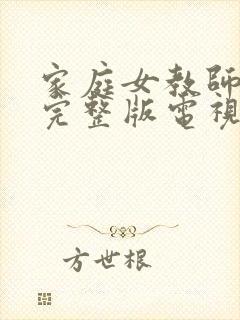 家庭女教師
完整版電視
方世根